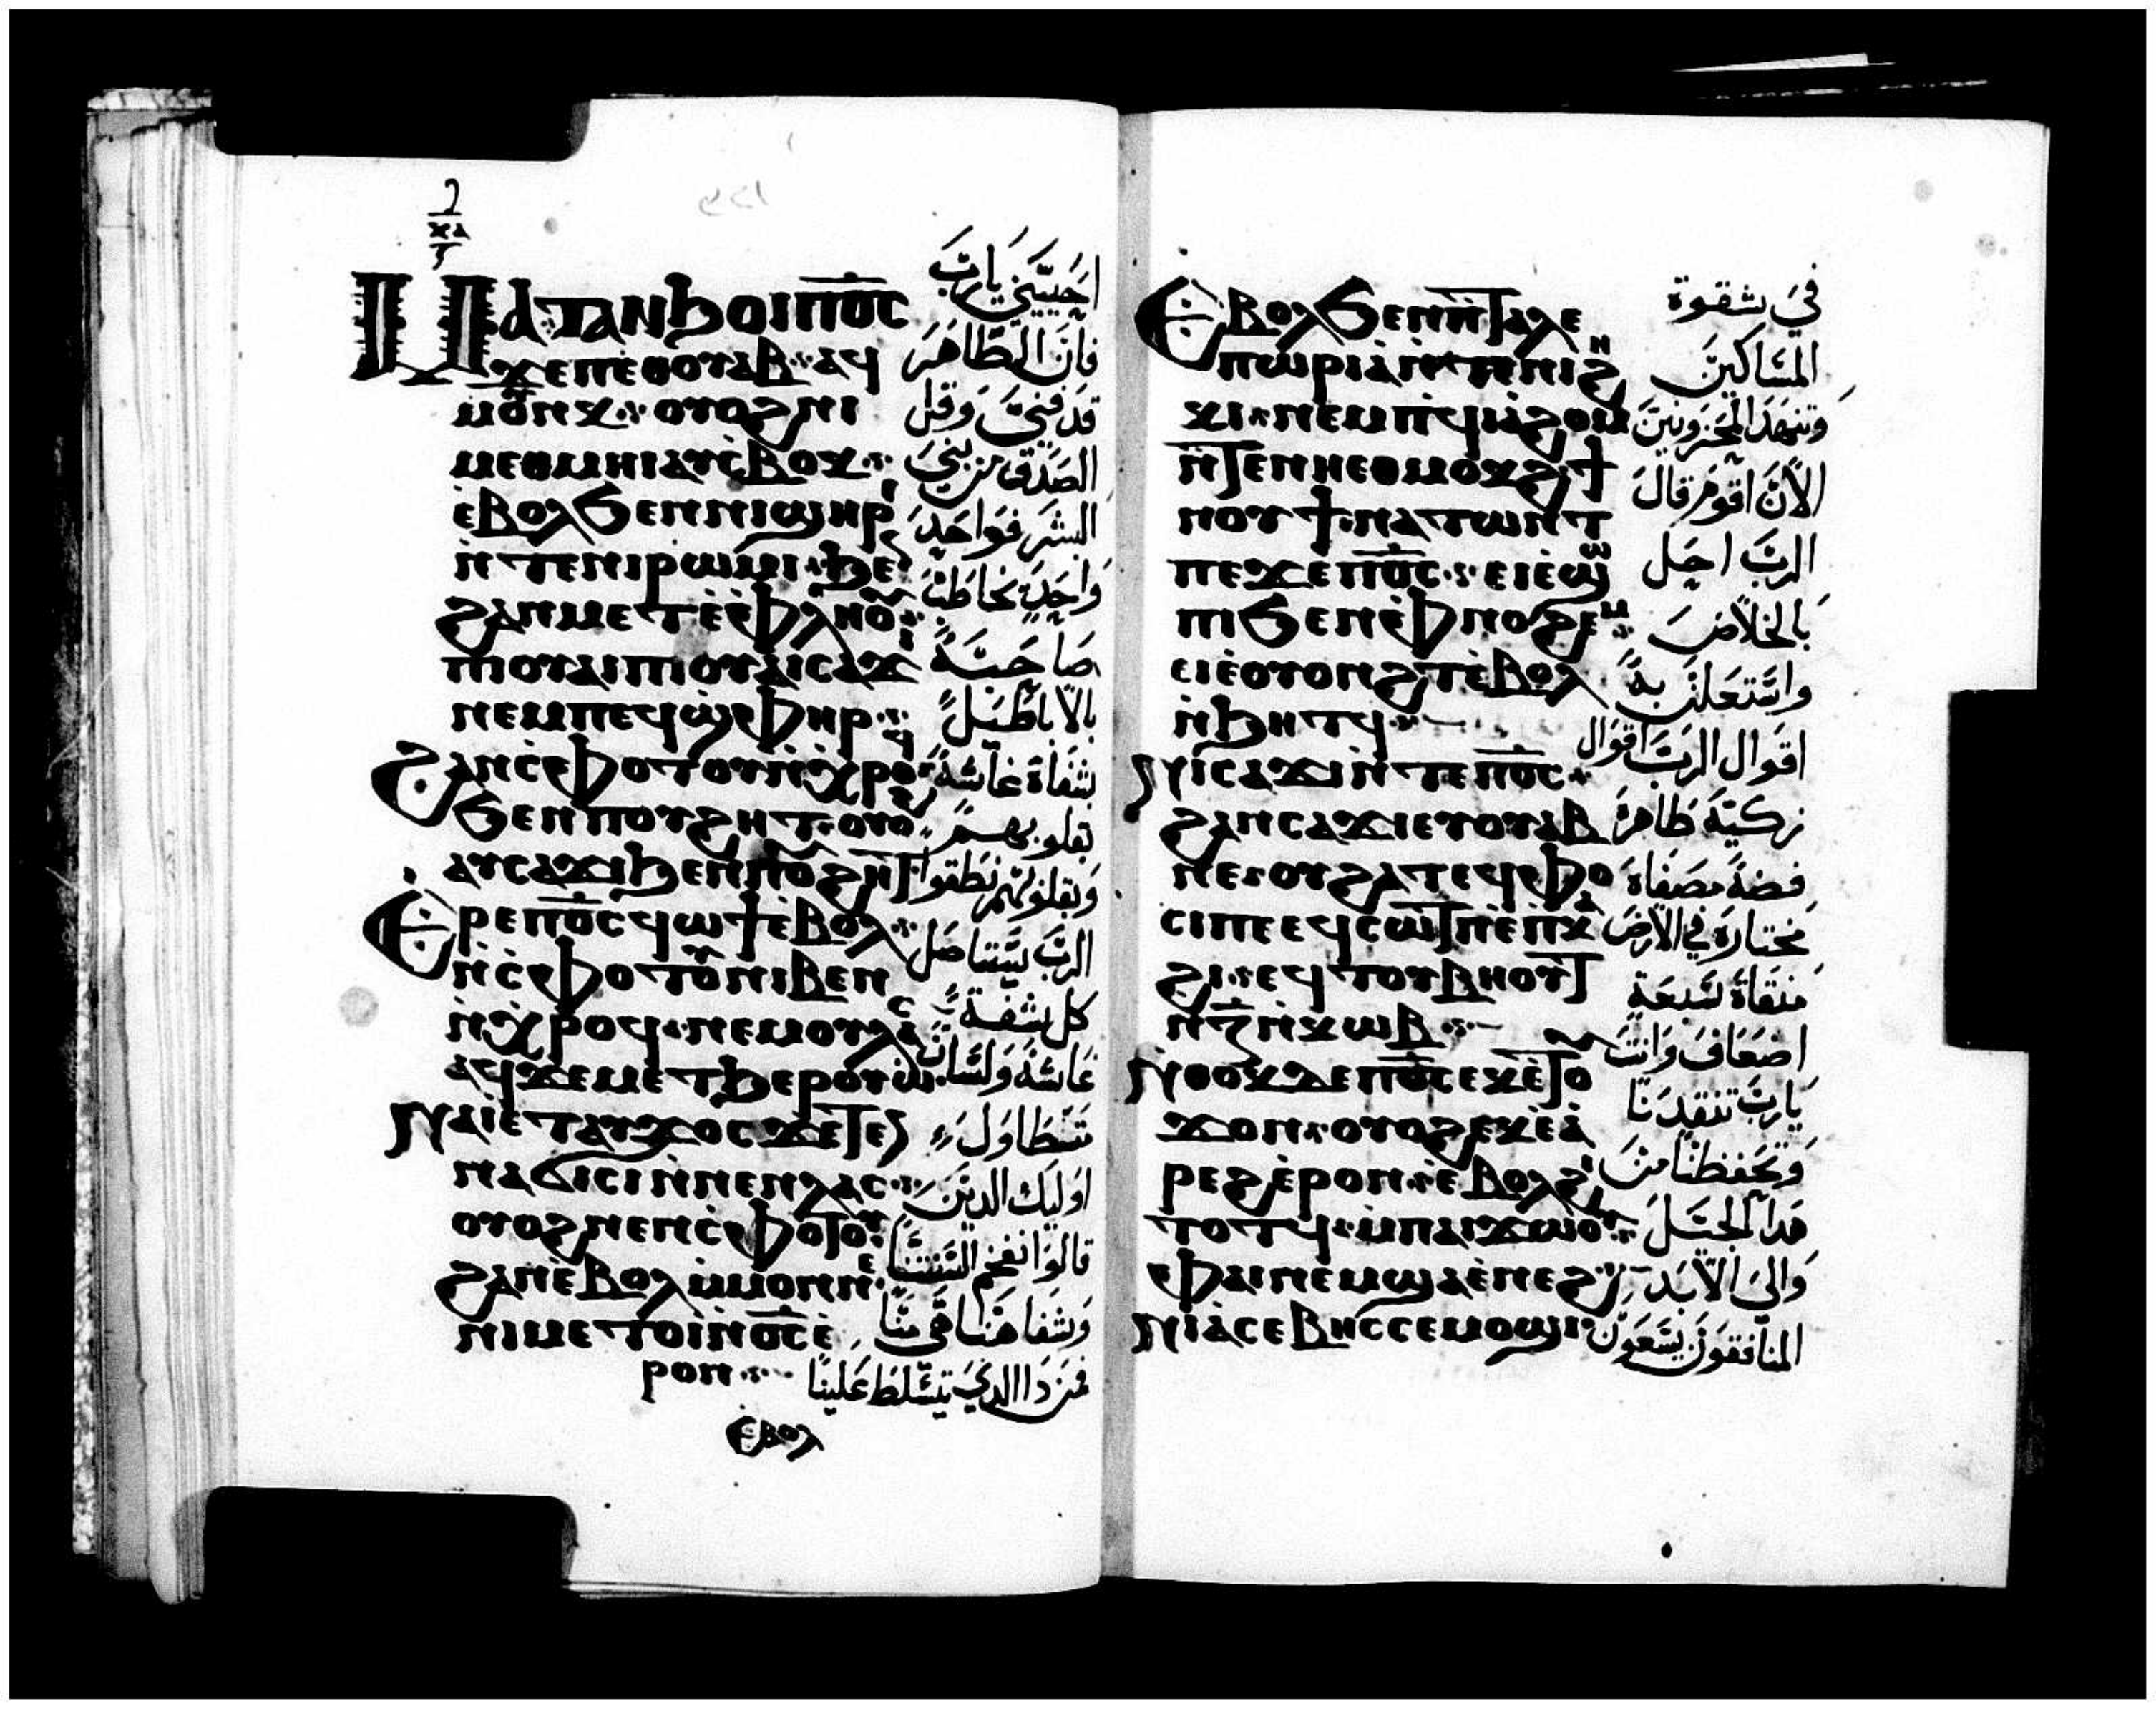 ⲙⲁⲧⲁⲛϧⲟⲓⲡⲟ̅ⲥ̅
ϫⲉⲡⲉⲑⲟⲩⲁⲃ ⲁϥ
ⲙⲟⲩⲛⲕ ⲟⲩⲟϩⲛⲓ
ⲙⲉⲑⲙⲏⲓⲁⲩⲥ̀ⲃⲟⲕ
ⲉ̀ⲃⲟⲗϧⲉⲛⲛⲓϣⲏⲣⲓ
ⲛ̀ⲧⲉⲛⲓⲣⲱⲙⲓ ϩⲉ
ϩⲁⲛⲙⲉⲧⲉ̀ⲫⲗⲏⲟⲩ
ⲡⲓⲟⲩⲁⲓⲡⲓⲟⲩⲁⲓⲥⲁϫⲓ
ⲛⲉⲙⲡⲉϥϣ̀ⲫⲏⲣ
ϩⲁⲛⲥ̀ⲫⲟⲧⲟⲩⲛ̀ⲭ̀ⲣⲟϥ
ϧⲉⲛⲡⲟⲩϩⲏⲧ ⲟⲩⲟϩ
ⲁⲩⲥⲁϫⲓϧⲉⲛⲡⲟⲩϩⲏⲧ
ⲉⲣⲉⲡⲟ̅ⲥ̅ϥⲱϯⲉ̀ⲃⲟⲗ
ⲛ̀ⲥ̀ⲫⲟⲧⲟⲩⲛⲓⲃⲉⲛ
ⲛ̀ⲭ̀ⲣⲟϥ ⲛⲉⲙⲟⲩⲗⲁⲥ
ⲁϥϫⲉⲙⲉⲧϩⲉⲣⲟⲩⲱ
ⲛⲁⲓⲉ̀ⲧⲁⲩϫⲟⲥϫⲉⲧⲉⲛ
ⲛⲁϭⲓⲥⲓⲛ̀ⲛⲉⲛⲗⲁⲥ
ⲟⲩⲟϩⲛⲉⲛⲥ̀ⲫⲟⲧⲟⲩ
ϩⲁⲛⲉ̀ⲃⲟⲗⲙ̀ⲙⲟⲛⲛⲉ
ⲛⲓⲙⲉⲧⲟⲓⲛ̀ⲟ̅ⲥ̅ⲉ̀
ⲣⲟⲛ
ⲉ̀ⲃⲟⲗ
احييني يارب
فان الطاهر
قد فني وقل
الصدق من بني
البشر فواحد
واحد يخاطب
صاحبه
بالاباطيل
شفاة غاشة
بقلوبهم
وبقلوبهم نطقوا
الرب يستاصل
كل شفة
غاشة ولسان
تتطاول
اوليك الدين
قالوا نفخم السنتنا
وشفاهنا هي منا
فمن دا الدي يتسلط علينا
ⲉⲃⲟⲗϧⲉⲛⲛ̀ⲧⲁⲗⲉ
ⲡⲱⲣⲓⲁ̀ⲛ̀ⲧⲉⲛⲓϩⲏ
ⲕⲓ ⲛⲉⲙⲡϥⲓⲁ̀ϩⲟⲙ
ⲛ̀ⲧⲉⲛⲏⲉⲑⲙⲟⲕϩ ϯ
ⲛⲟⲩϯⲛⲁⲧⲱⲛⲧ
ⲡⲉϫⲉⲡⲟ̅ⲥ̅ ⲉⲓⲉ̀ϣⲱ
ⲡⲓϧⲉⲛⲉ̀ⲫⲛⲟϩⲉⲙ
ⲉⲓⲉ̀ⲟⲩⲟⲛϩⲧⲉ̀ⲃⲟⲗ
ⲛ̀ϧⲏⲧϥ
ⲛⲓⲥⲁϫⲓⲛ̀ⲧⲉⲡⲟ̅ⲥ̅
ϩⲁⲛⲥⲁϫⲓⲉⲩⲟⲩⲁⲃ
ⲛⲉ ⲟⲩϩⲁⲧⲉϥⲫⲟ
ⲥⲓⲡⲉⲉϥⲥⲱⲧⲡⲉ̀ⲡⲕⲁ
ϩⲓ ⲉϥⲧⲟⲩⲃⲏⲟⲩⲧ
ⲛ̀ⲍ̅ⲛ̀ⲕⲱⲃ
ⲛⲑⲟⲕⲇⲉⲡⲟ̅ⲥ̅ⲉⲕⲉ̀ⲧⲟⲩ
ϫⲟⲛ ⲟⲩⲟϩⲉⲕⲉ̀ⲁ̀
ⲣⲉϩⲉ̀ⲣⲟⲛ ⲉ̀ⲃⲟⲗϩⲓ
ⲧⲟⲧϥ ⲙ̀ⲡⲁⲓϫⲱⲟⲩ
ⲫⲁⲓⲛⲉⲙϣⲁⲉ̀ⲛⲉϩ
ⲛⲓⲁ̀ⲥⲉⲃⲏⲥⲥⲉⲙⲟϣⲓ
في شقوة
المساكين
وتنهد المحزونين
الان اقوم قال
الرب اجعل
بالخلاص
واستعلن به
اقوال الرب اقوال
زكية طاهرة
فضة مصفاة
مختارة في الارض
منقاة سبعة
اضعاف وانت
يارب تنقدنا
وتحفظنا من
هدا الجيل
والي الابد
المنافقون يسعون